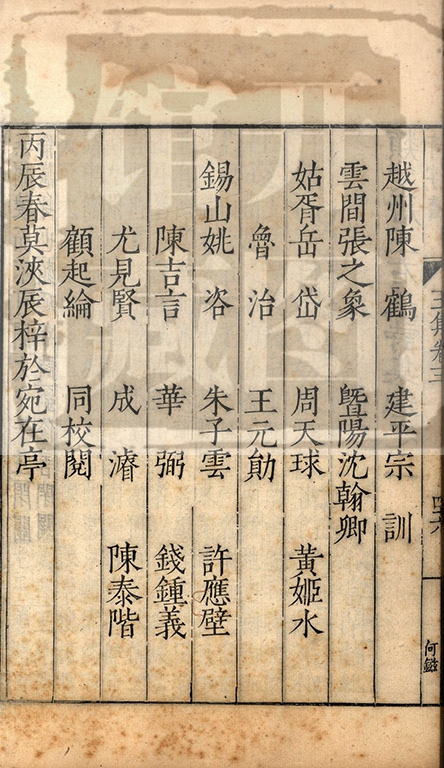 越州陳鶴 建平宗訓
雲間張之象 暨陽沈翰卿
姑胥岳岱 周天球 黃姬水
魯治 王元勛
錫山姚咨 朱子雲 許應壁
陳吉言 華弼 錢鍾義
尤見賢 成濬 陳泰階
顧起綸 同校閱
丙辰春莫浹辰梓於宛在亭
何鎡